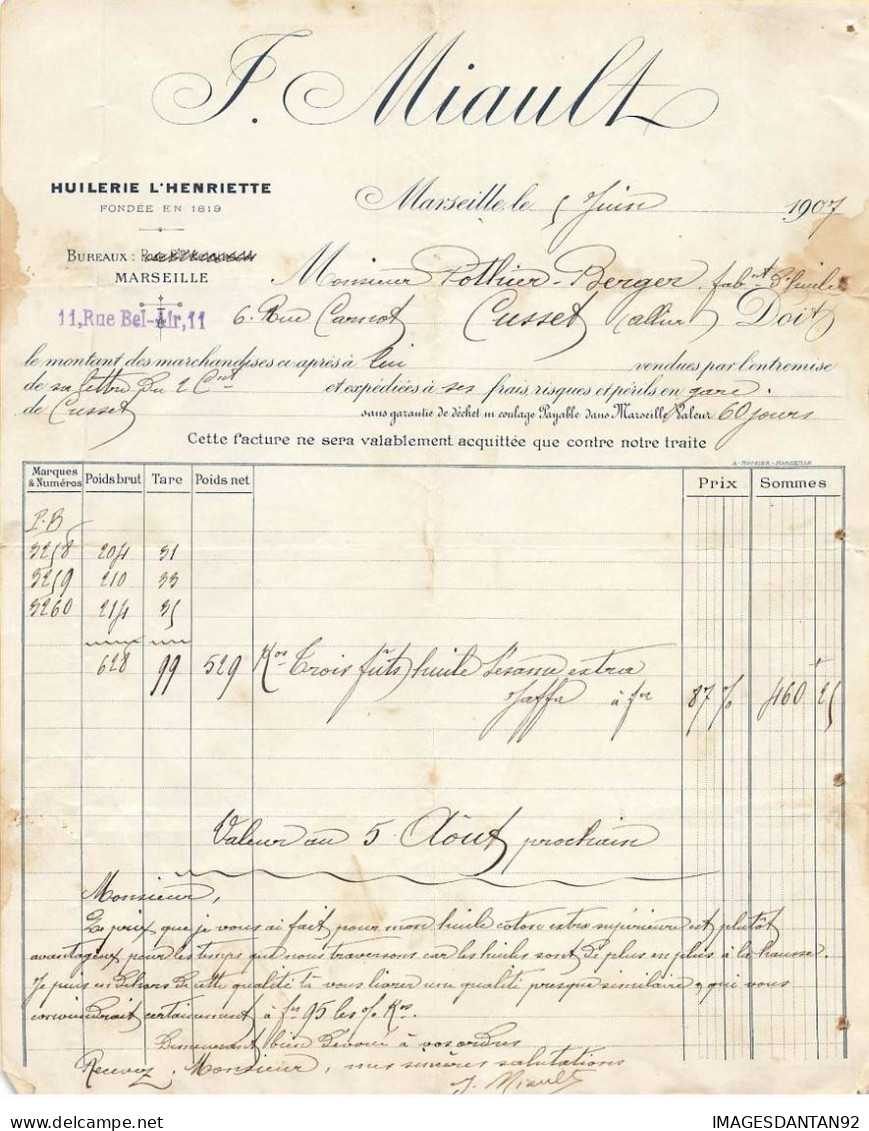 J. Miault
HUILERIE L'HENRIETTE
FONDÉE EN 1819
Marseille, le 5 Juin 1907
BUREAUX :
MARSEILLE
11, Rue Bel-Air, 11
Monsieur Pothier-Berger, fabt d'huile
6. Rue Carnot Cusset (allier) Doit
le montant des marchandises ci après à lui vendues par l'entremise
de sa lettre du 2 Cnt et expédiées à ses frais, risques et périls en gare
de Cusset sans garantie de déchet ni coulage Payable dans Marseille Valeur 60 jours
Cette facture ne sera valablement acquittée que contre notre traite
Marques & Numéros Poids brut Tare Poids net Prix Sommes
P.B
3258 204 31
3259 210 33
3260 214 35
628 99 529 Kos Trois fûts huile Sésame extra
Jaffa à fr 87 % 460 25
Valeur au 5 Août prochain
Monsieur,
Le prix que je vous ai fait pour mon huile coton extra supérieure est plutôt
avantageux pour les temps que nous traversons car les huiles sont de plus en plus à la hausse.
Je puis en dehors de cette qualité là vous livrer une qualité presque similaire, qui vous
conviendrait certainement à frs 95 les % Kos.
Demeurant bien dévoué à vos ordres
Recevez, Monsieur, mes sincères salutations
J. Miault
IMAGESDANTAN92